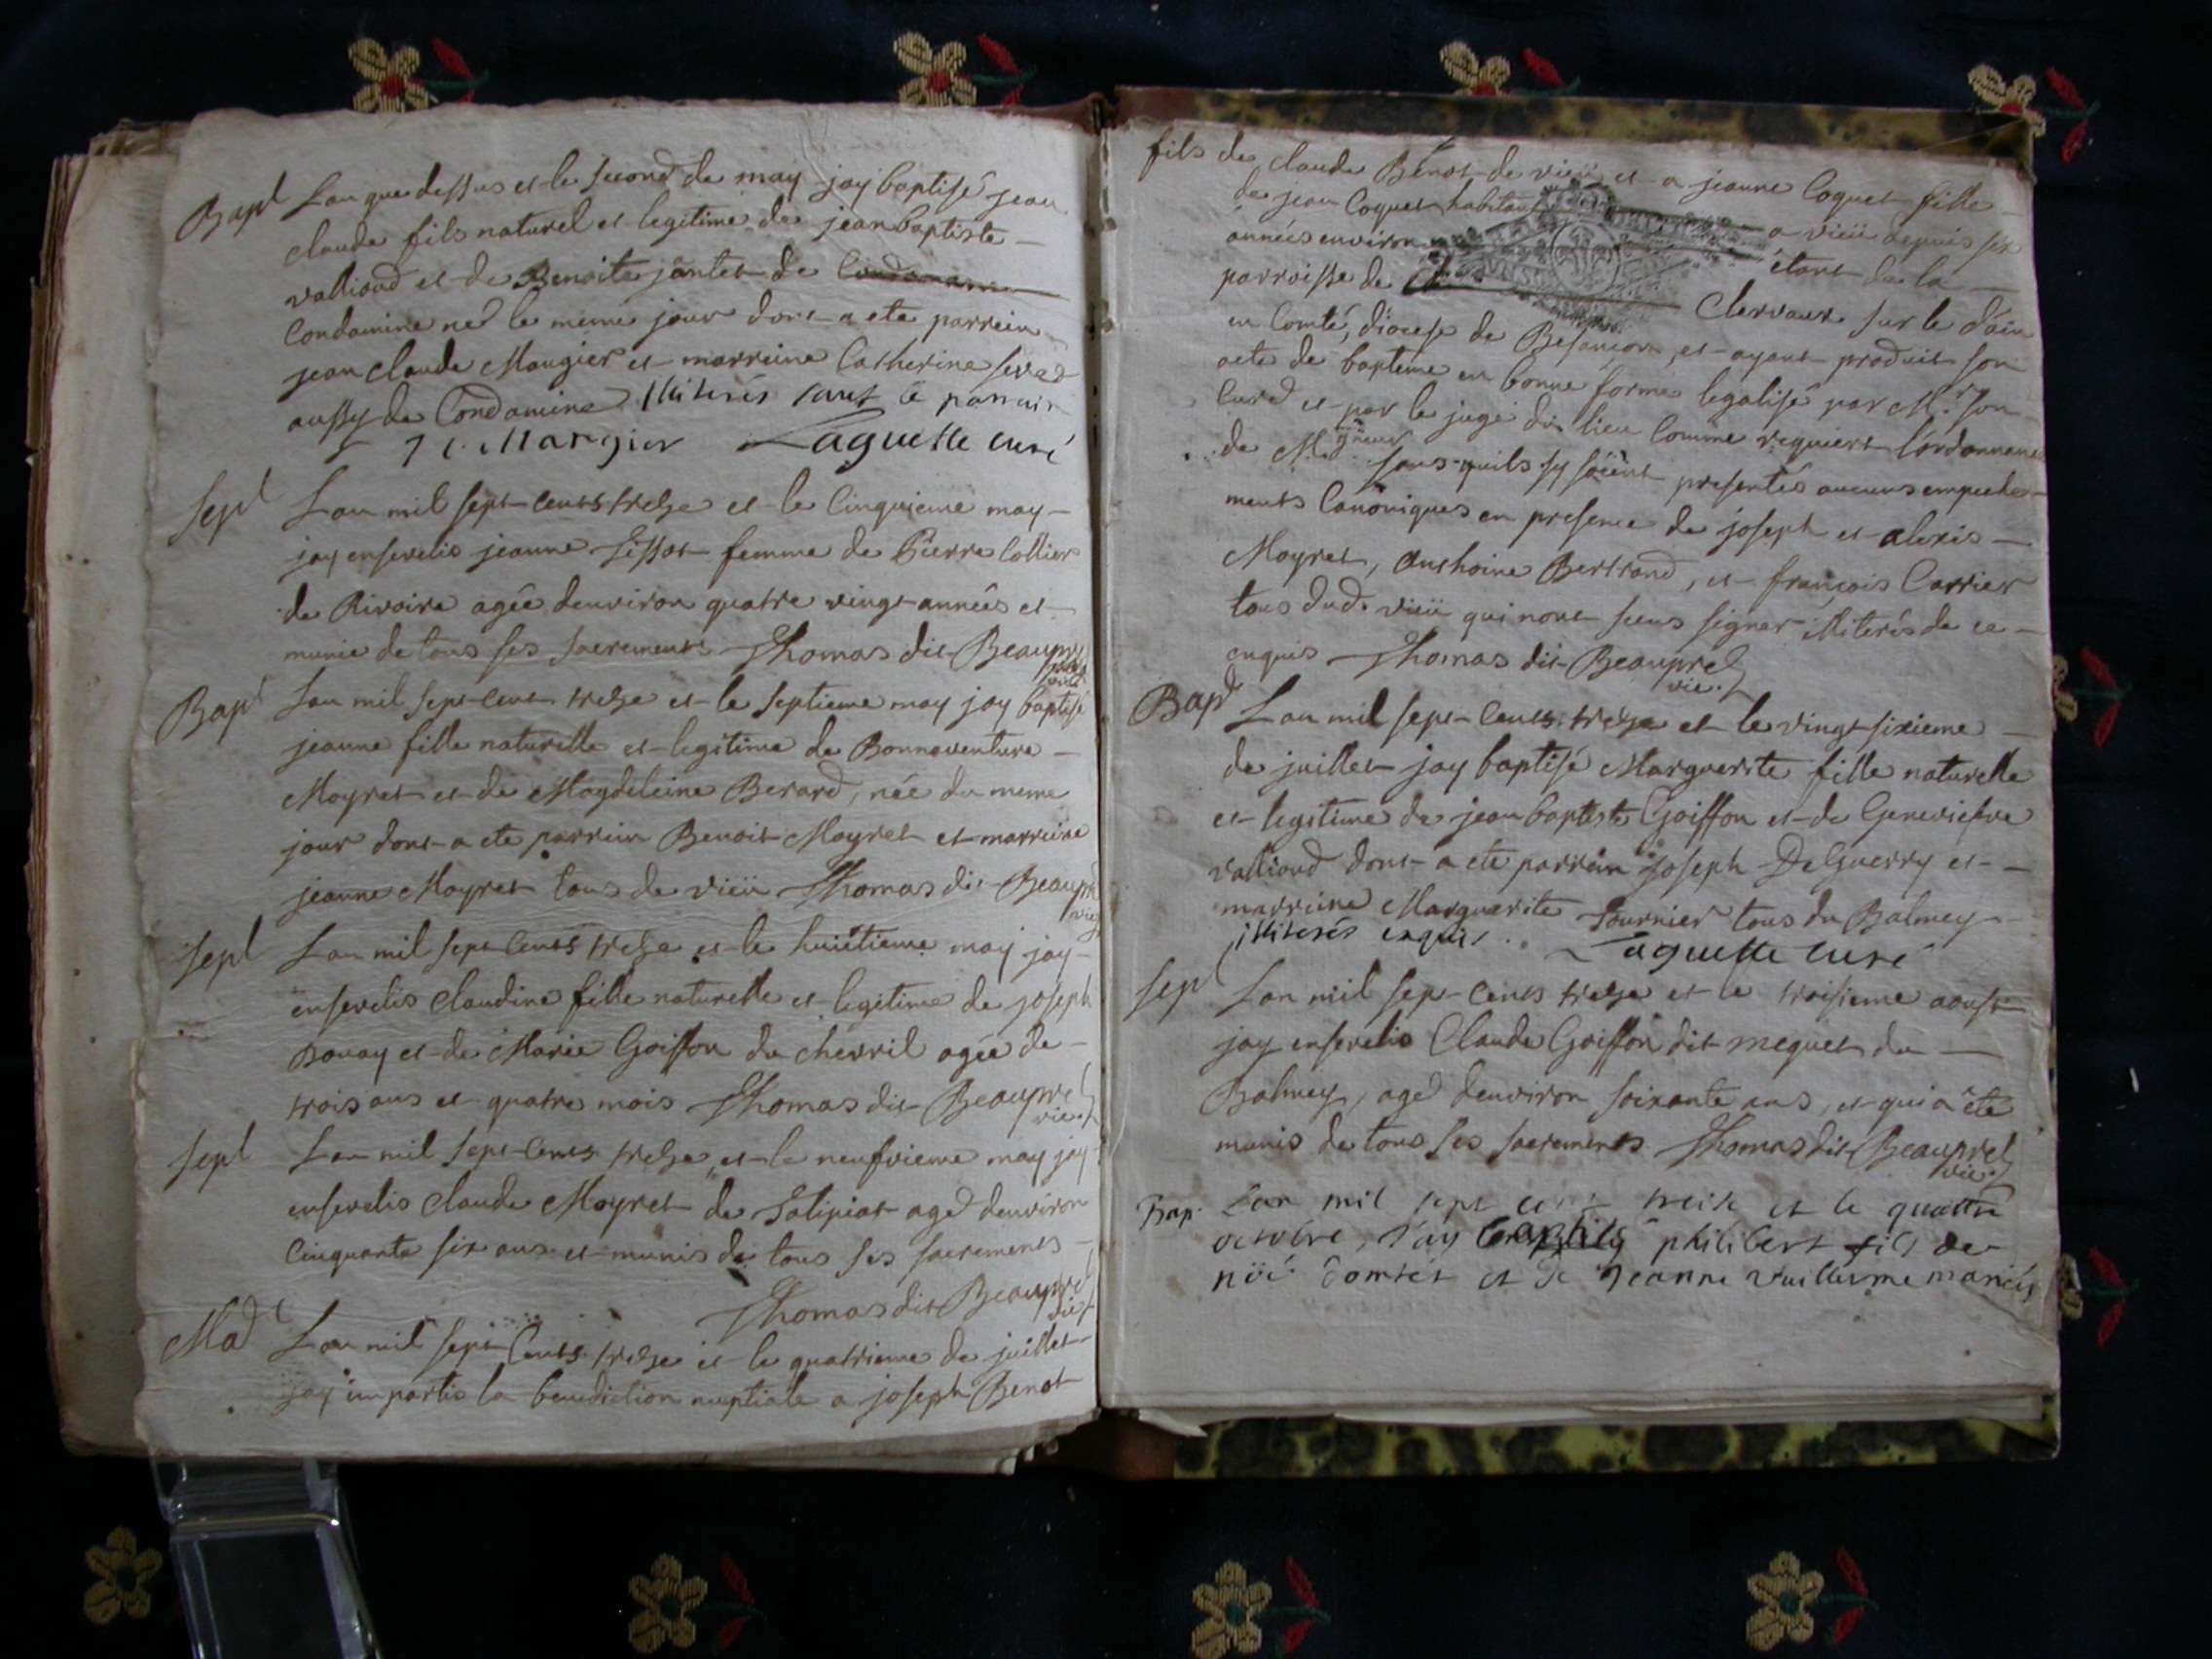 Bapt Lan que dessus et le second de may jay baptisé jean
claude fils naturel et legitime de jean baptiste
valliond et de Benoite jantet de Condamine
Condamine né le meme jour dont a ete parrein
jean claude Maugier et marreine Catherine
aussy de Condamine illiterés sauf le parrain
J c. Maugier Laguette curé
Sepl Lan mil sept cents treize et le cinquieme may
jay ensevelis jeanne Tissot femme de Pierre Collier
de Rivoire agée denviron quatre vingt années et
munie de tous ses sacrements Thomas dit Beauprel
vic.
Bapt Lan mil sept cent treize et le septieme may jay baptisé
jeanne fille naturelle et legitime de Bonnaventure
Moyret et de Magdeleine Berard, née du meme
jour dont a ete parrein Benoit Moyret et marreine
jeanne Moyret tous de vieü Thomas dit Beauprel
vic.
Sepl Lan mil sept cents treize et le huictieme may jay
ensevelis claudine fille naturelle et legitime de joseph
Bonay et de Marie Goiffon du cherril agée de
trois ans et quatre mois Thomas dit Beauprel
vic.
Sepl Lan mil sept cents treize et le neufvieme may jay
ensevelis claude Moyret de Salipiat agé denviron
cinquante six ans et munis de tous ses sacrements
Thomas dit Beauprel
vic.
Mad Lan mil sept cents treize et le quatrieme de juillet
jay impartis la benediction nuptiale a joseph Benot
fils de claude Benot de vieü et a jeanne Coquet fille
de jean Coquet habitant a vieü depuis six
années environ étant de la
parroisse de Clervaux sur le dain
en Comté, diocese de Besançon, et ayant produit son
acte de bapteme en bonne forme legalisé par Mr. son
curé et par le juge du lieu comme requiert lordonnance
de Mgneur sans quils sy soient presentés aucuns empeche-
ments canoniques en presence de joseph et alexis
Moyret, Anthoine Bertrand, et françois Carrier
tous dud. vieü qui nont sceus signer illiterés de ce
enquis Thomas dit Beauprel
vic.
Bapt Lan mil sept cents treize et le vingt sixieme
de juillet jay baptisé Marguerite fille naturelle
et legitime de jean baptiste Goiffon et de Geneviefve
valliond dont a ete parrein joseph DeGuerry et
marreine Marguerite Fournier tous du Balmey
illiterés enquis. Laguette curé
Sepl Lan mil sept cents treize et le troisieme aoust
jay ensevelis Claude Goiffon dit meguet du
Balmey, agé denviron soixante ans, et qui a été
munis de tous ses sacrements Thomas dit Beauprel
vic.
Bap. Lan mil sept cent treise et le quattre
octobre, J'ay baptisé philibert fils de
et de Jeanne vuillerme mariés